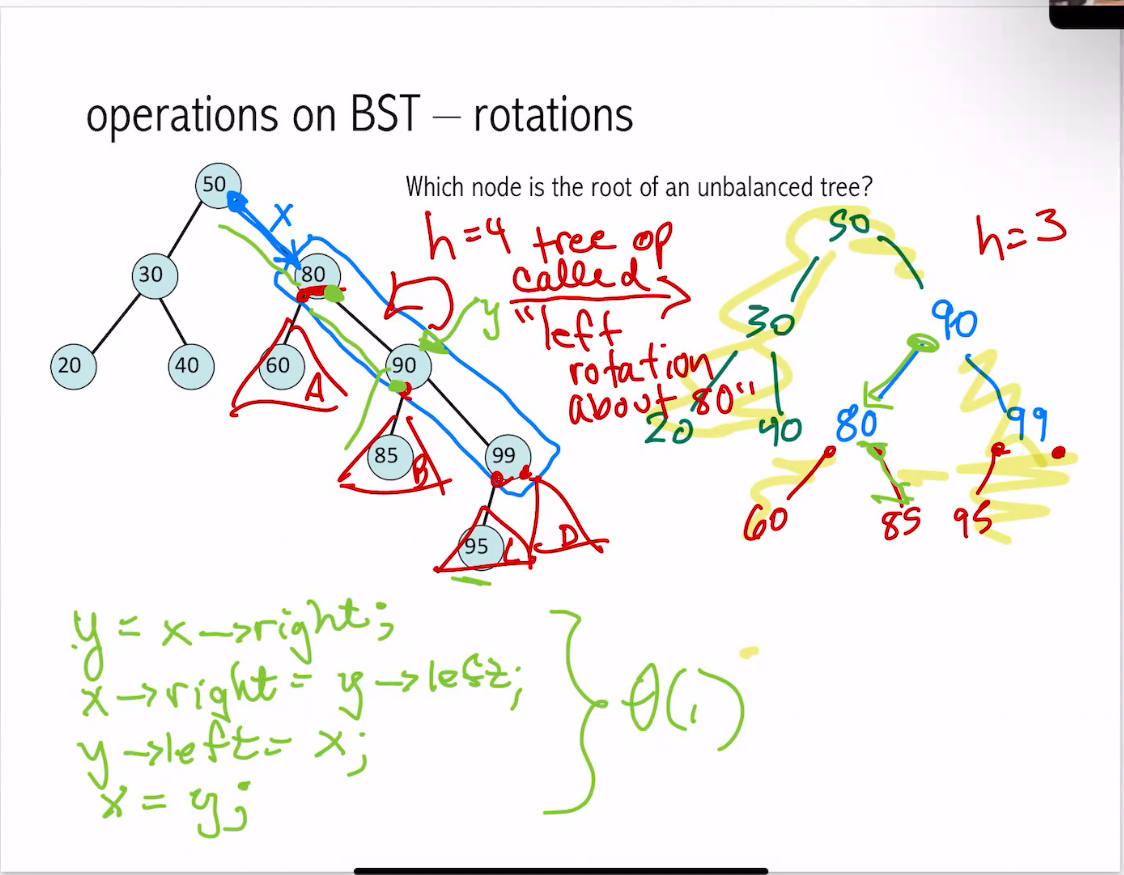 operations on BST – rotations
Which node is the root of an unbalanced tree?
50
X
80
30
20
40
60
A
90
y
85
B
99
95
C
D
h=4
tree op
called
"left
rotation
about 80"
h=3
50
30
90
20
40
80
99
60
85
95
y = x->right;
x->right = y->left;
y->left = x;
x = y;
θ(1)